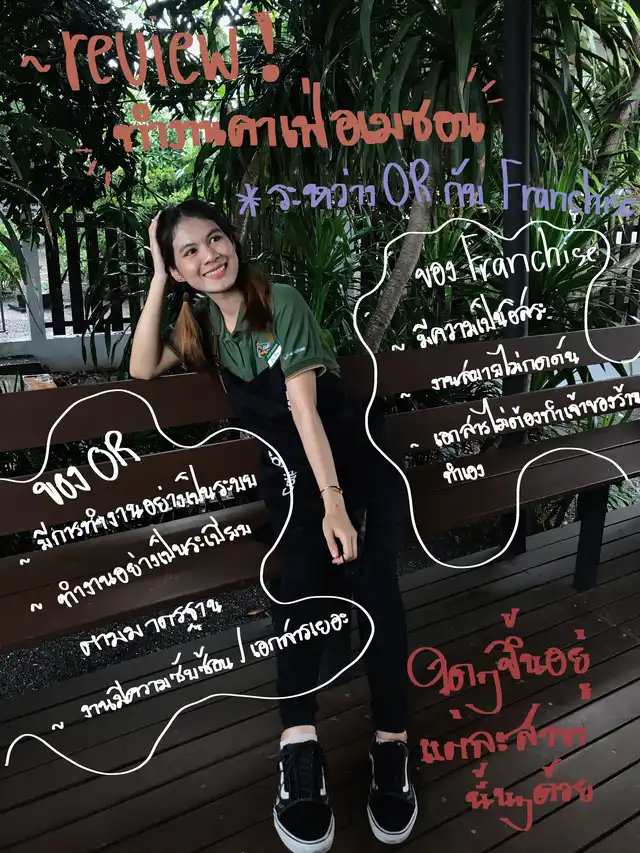 ~ review !
ทำงานคาเฟ่อเมซอน
* ระหว่าง OR กับ Franchise
ของ Franchise
~ มีความเป็นอิสระ
~ งานสบายไม่กดดัน
~ เอกสารไม่ต้องทำเจ้าของร้าน
ทำเอง
ของ OR
~ มีการทำงานอย่างเป็นระบบ
~ ทำงานอย่างเป็นระเบียบ
ตามมาตรฐาน
~ งานมีความซับซ้อน / เอกสารเยอะ
ใดๆขึ้นอยู่
แต่ละสาขา
นั้นๆด้วย